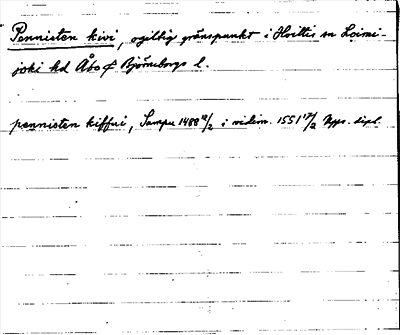 Pennisten kivi, ogiltig gränspunkt i Hvittis sn Loimi-
joki hd Åbo o Björneborgs l.
pennisten kiffui, Sampu 1488 12/2 i vidim. 1551 17/2 Upps. dipl.